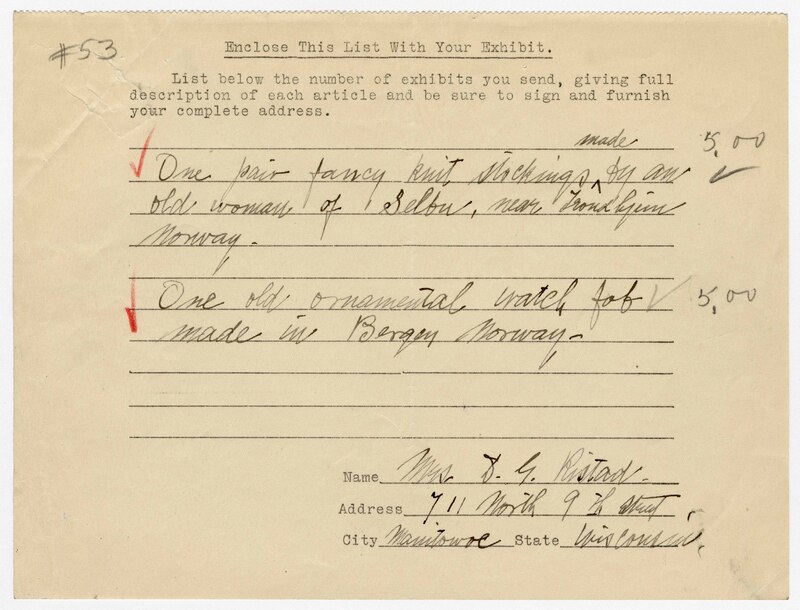 #53
Enclose This List With Your Exhibit.
List below the number of exhibits you send, giving full
description of each article and be sure to sign and furnish
your complete address.
made 5.00
One pair fancy knit stockings ^ by an
old woman of Selbu, near Trondhjem
Norway.
One old ornamental watch fob 5.00
made in Bergen Norway-
Name Mrs. D. G. Ristad.
Address 711 North 9th Street,
City Manitowoc State Wisconsin.